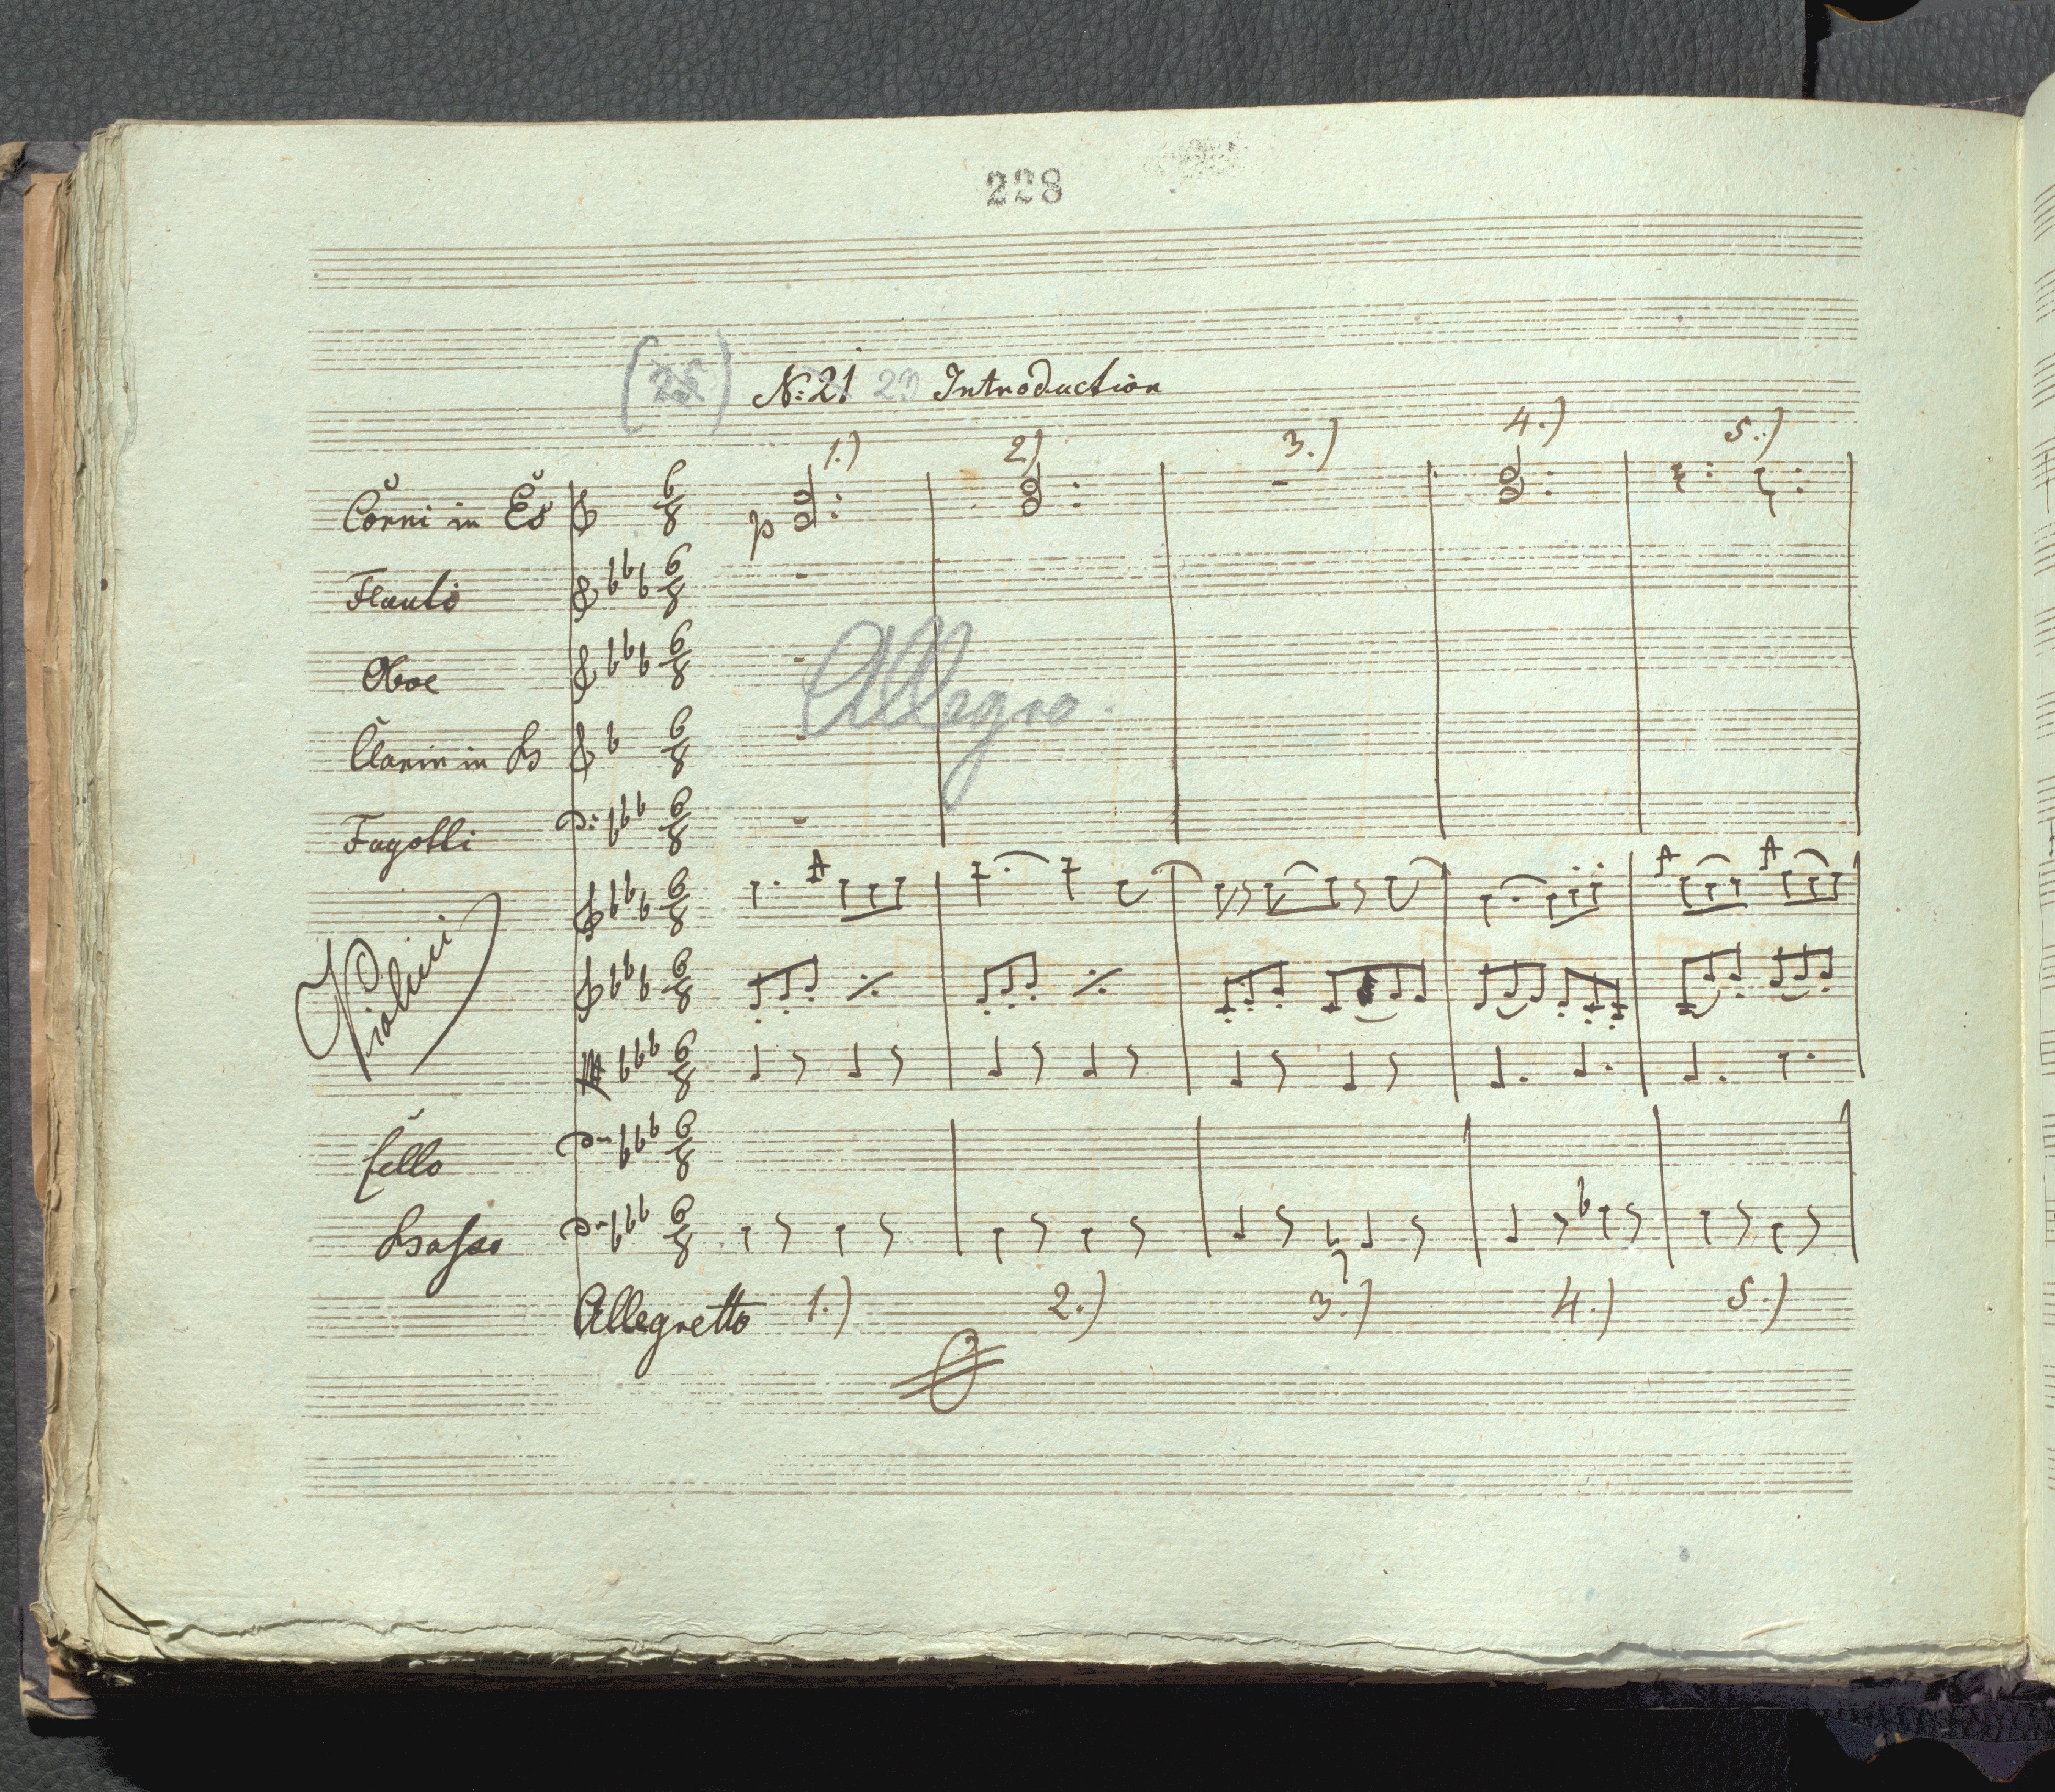 228
(25) No: 21 23 Introduction
1.) 2.) 3.) 4.) 5.)
Corni in Es
p
Flauto
Oboe
Allegro.
Clarin in B
Fagotti
Violini
Cello
Basso
Allegretto 1.) 2.) 3.) 4.) 5.)